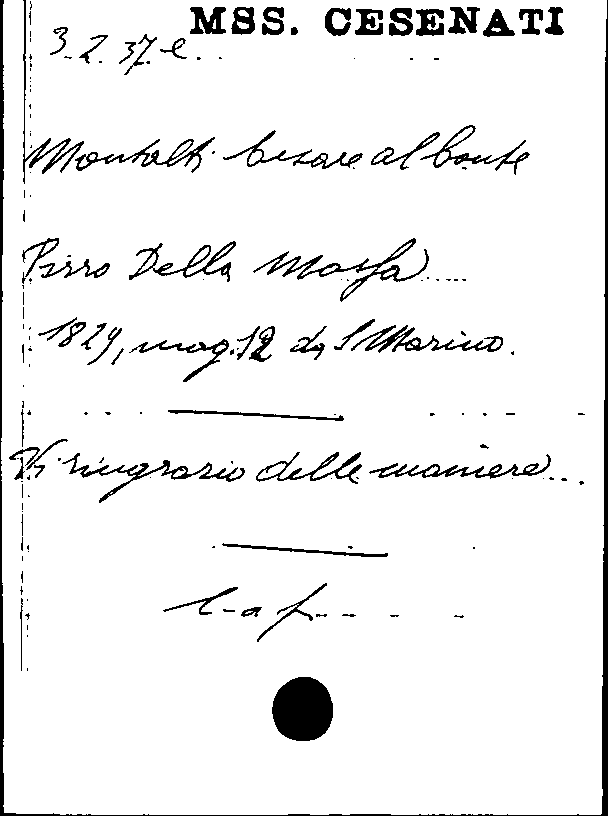 MSS. CESENATI
3.2.37.e
Montalti Cesare al Conte
Pirro Della Massa
1829, mag. 12 da S Marino.
Vi ringrazio delle maniere...
l-a f